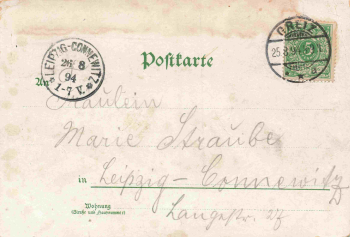 LEIPZIG-CONNEWITZ
8
94
1-7 V.
GREIZ
Postkarte
An
Fräulein
Marie Straube
in Leipzig-Connewitz
Wohnung
(Straße und Hausnummer)
Langestr. 27